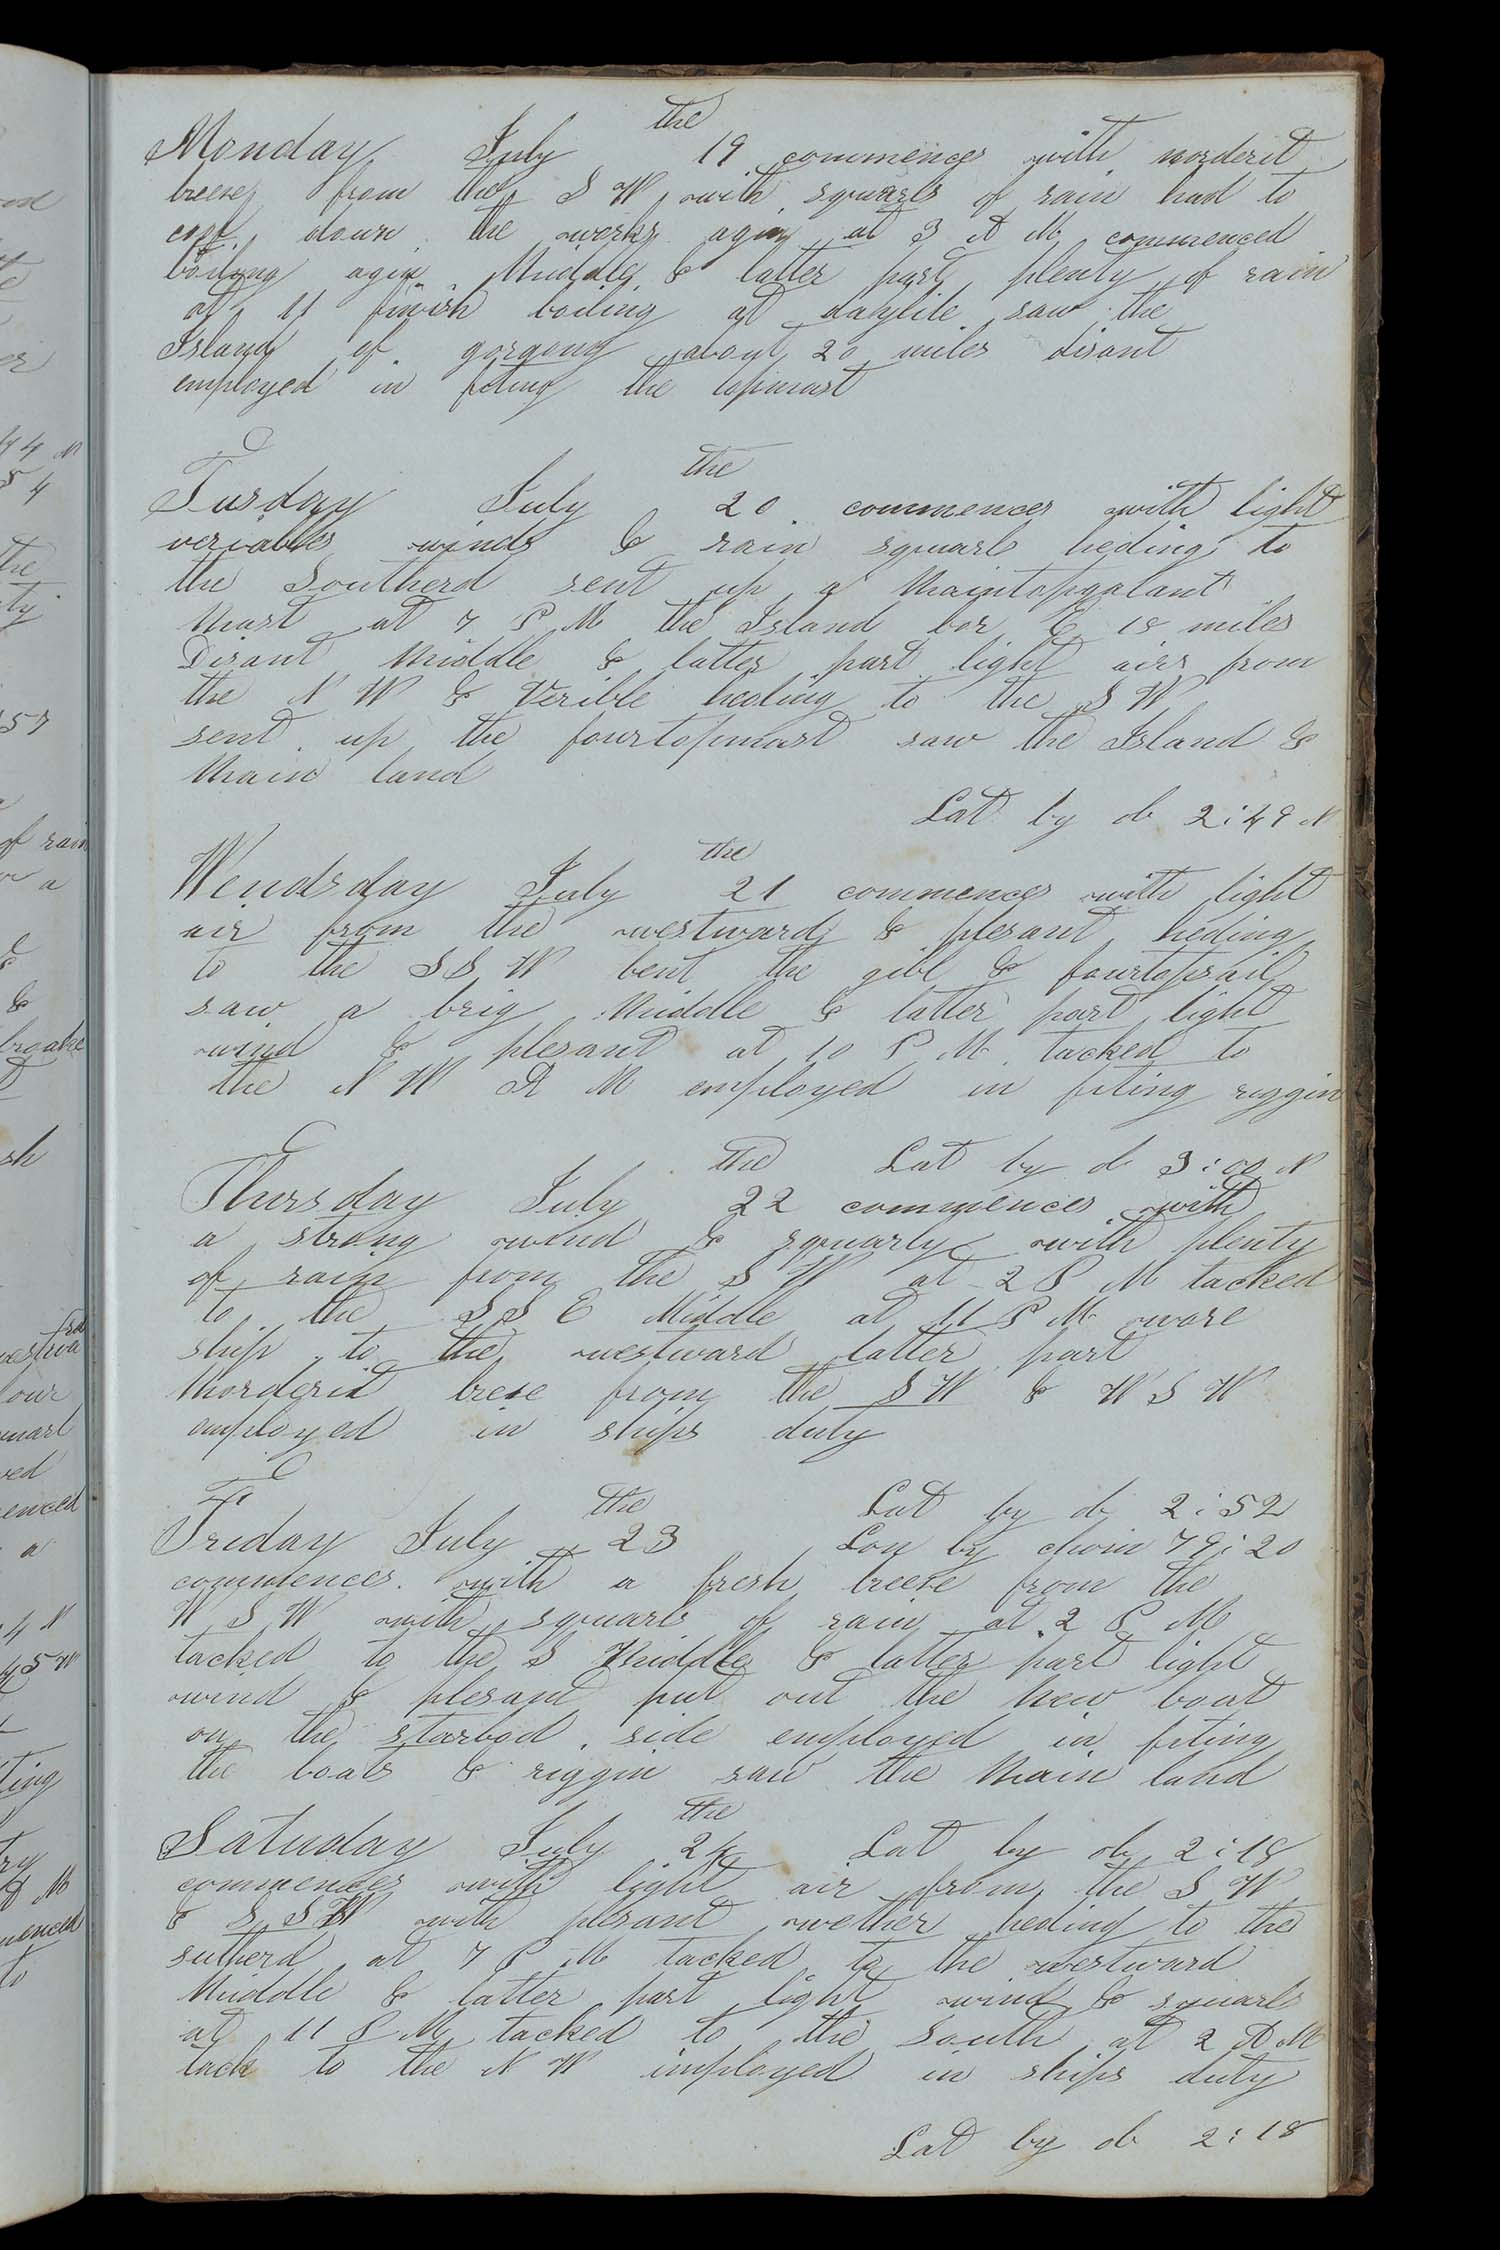 Monday July the 19 commences with morderit
breese from the S W with squarls of rain had to
cool down the works agin at 3 A M commenced
boiling agin Middle & latter part plenty of rain
at 11 finish boiling at daylite saw the
Island of gorgong about 20 miles disant
employed in fiting the topmast
Tusday July the 20 commences with light
veriables winds & rain squarls heding to
the Southerd sent up a Maintopgalant
Mast at 7 P M the Island bor E 18 miles
Disant Middle & latter part light airs from
the N W & Verible heding to the S W
sent up the fourtopmast saw the Island &
Main land
Lat by ob 2:49 N
Wendsday July the 21 commences with light
air from the westward & plesant heding
to the S S W bent the gibl & fourtopsail
saw a brig Middle & latter part light
wind & plesant at 10 P M tacked to
the N W A M employed in fiting riggin
Lat by ob 3:00 N
Thursday July the 22 commences with
a strong wind & squarly with plenty
of rain from the S W at 2 P M tacked
to the S S E Middle at 11 P M wore
ship to the westward latter part
Morderit brese from the S W & W S W
employed in ships duty
Lat by ob 2:52
Friday July the 23 Lon by chron 79:20
commences with a fresh breese from the
W S W with squarls of rain at 2 P M
tacked to the S Middle & latter part light
wind & plesant put out the New boat
on the starbod side employed in fiting
the boats & riggin saw the Main land
Satuday July the 24 Lat by ob 2:18
commences with light air from the S W
& S S W with plesant wether heding to the
sutherd at 7 P M tacked to the westward
Middle & latter part light wind & squarls
at 11 P M tacked to the South at 2 A M
tack to the N W imployed in ships duty
Lat by ob 2:18